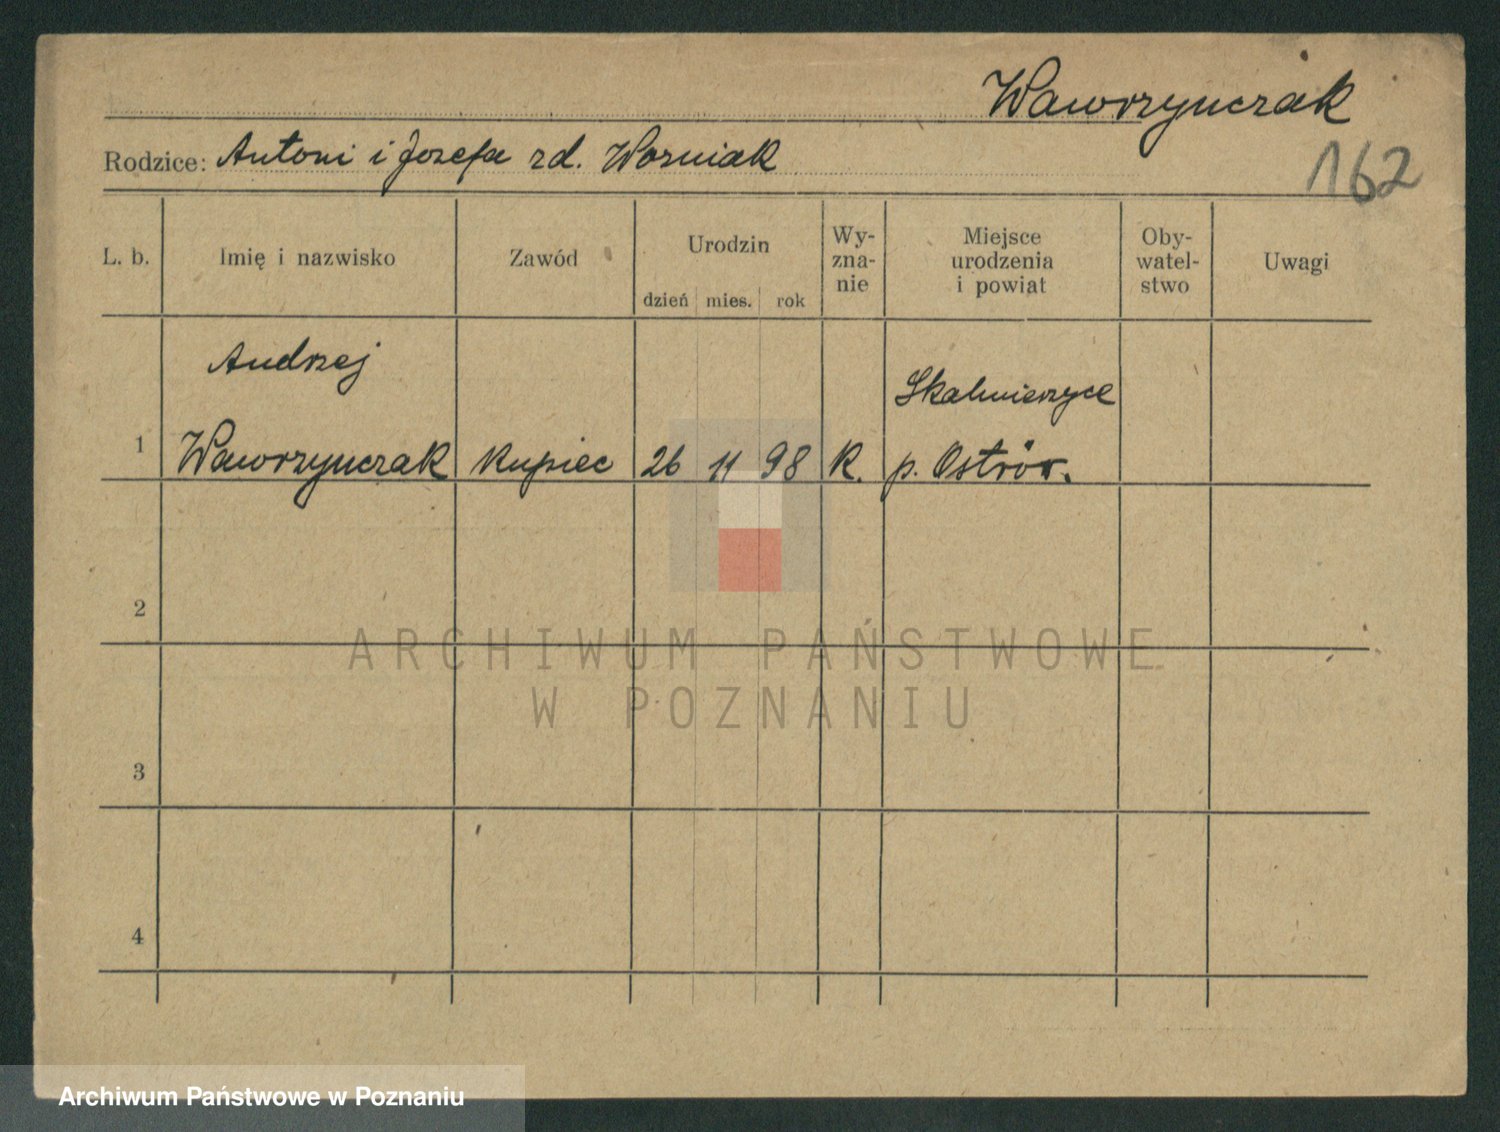 Wawrzynczak
Rodzice: Antoni i Jozefa zd. Wozniak
162
L. b. Imię i nazwisko Zawód Urodzin dzień mies. rok Wy-
zna-
nie Miejsce
urodzenia
i powiat Oby-
watel-
stwo Uwagi
Andrzej
Skalmierzyce
1 Wawrzynczak kupiec 26 11 98 K. p. Ostrów.
2
ARCHIWUM PAŃSTWOWE
W POZNANIU
3
4
Archiwum Państwowe w Poznaniu